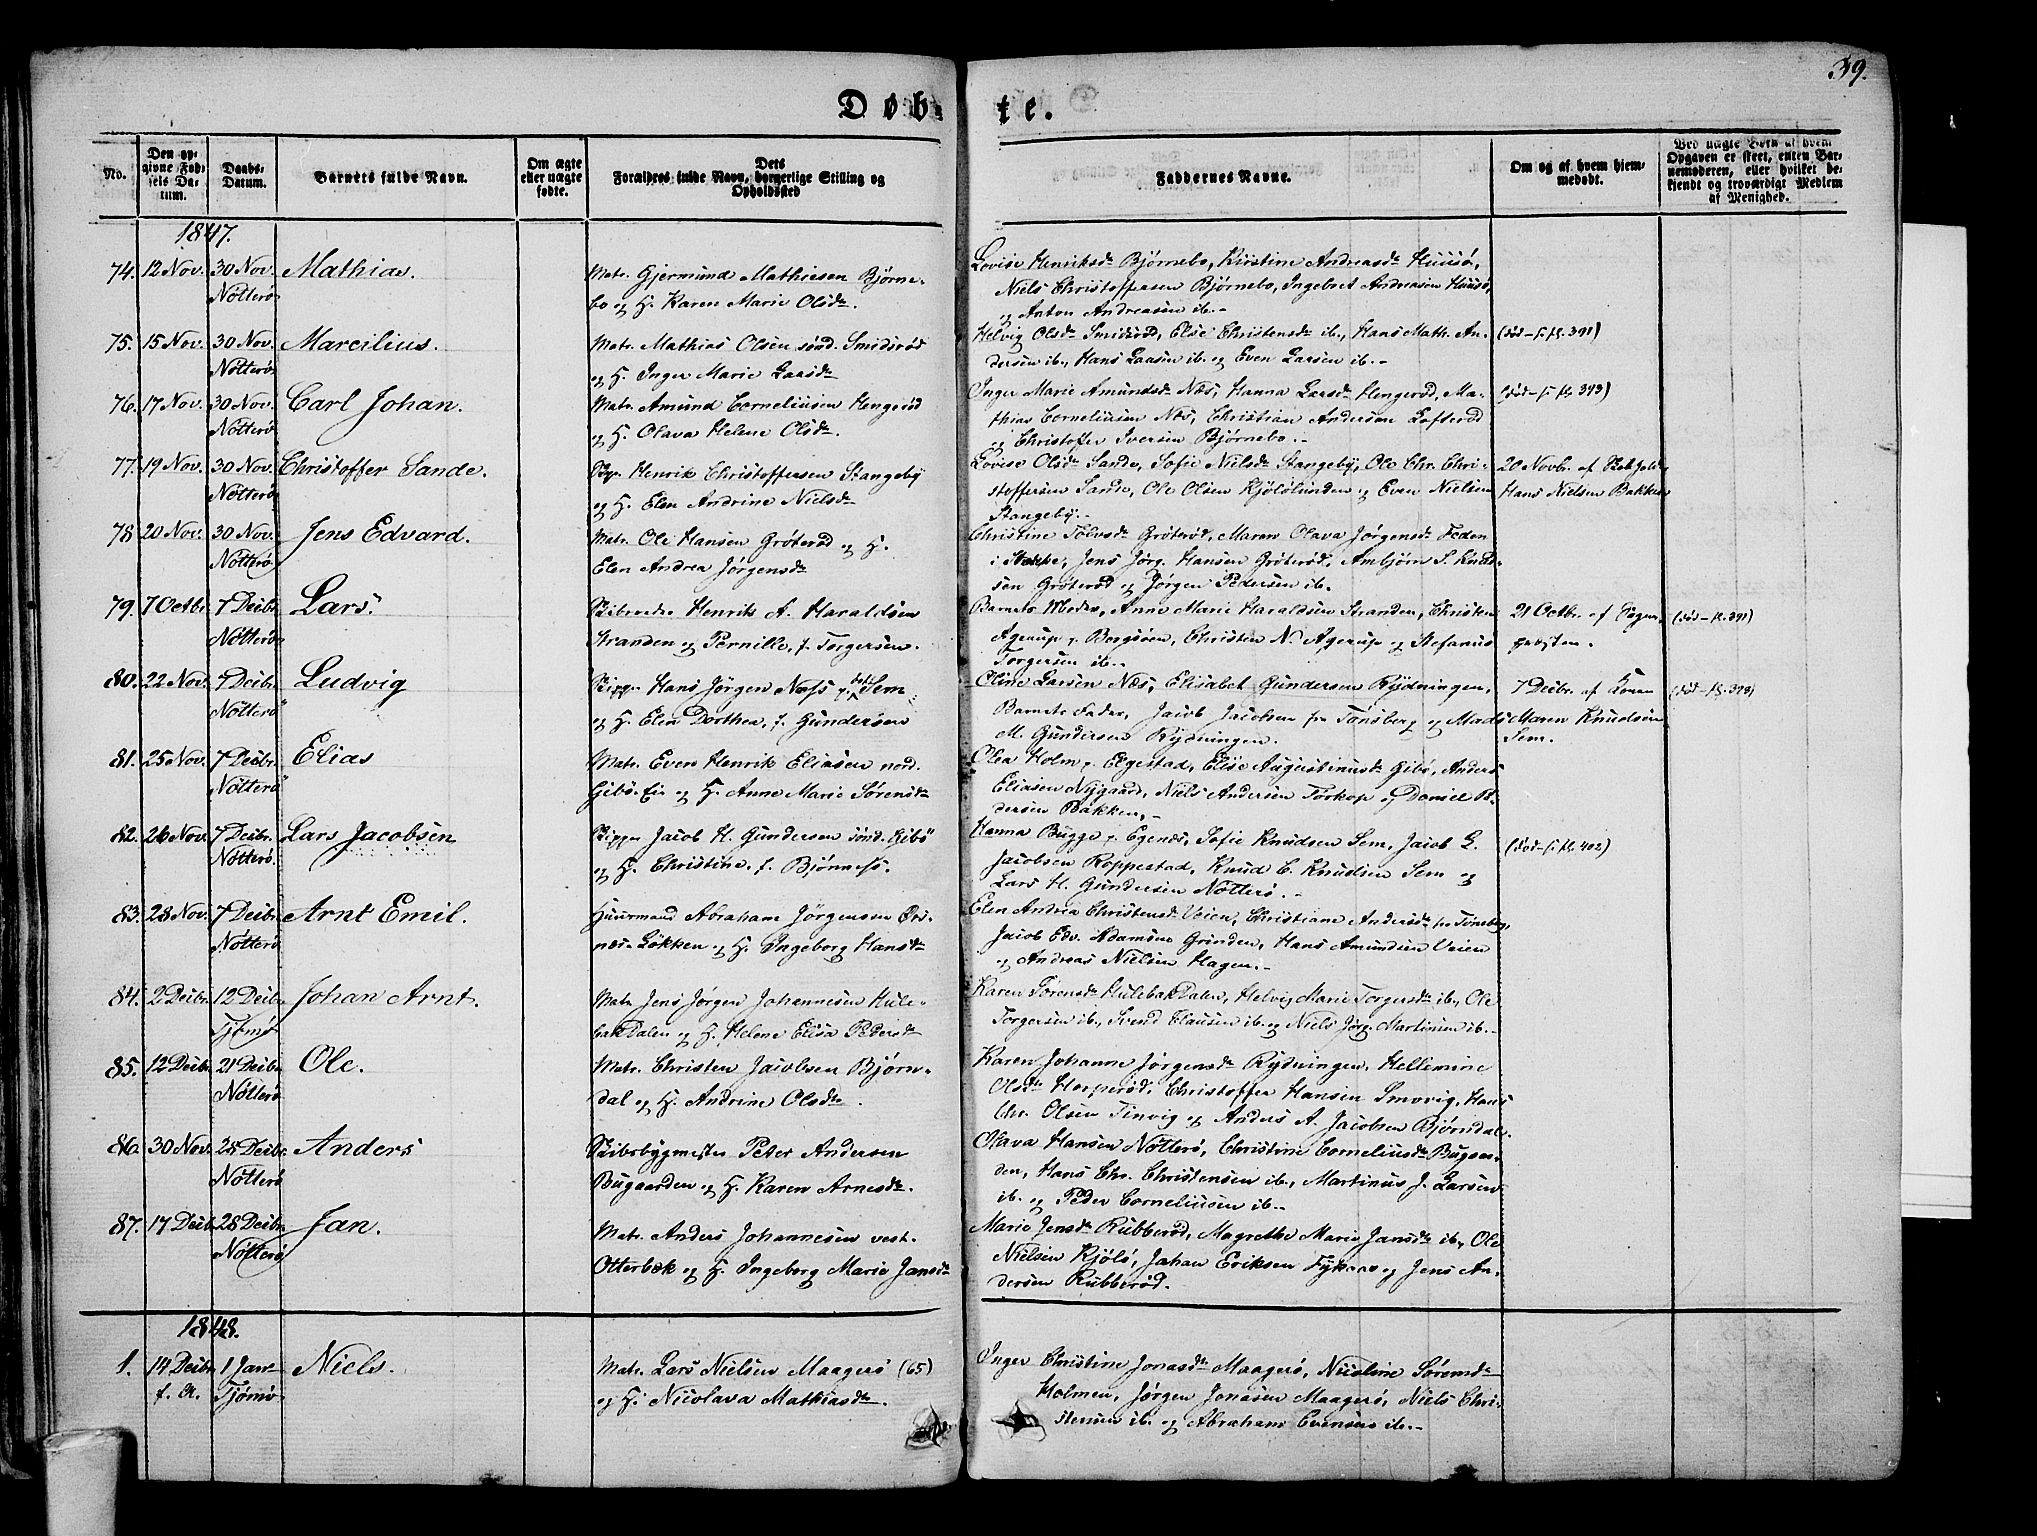 39.
Døb- te.
No.
Den op-
givne Fød-
sels Da-
tum.
Daabs-
Datum.
Barnets fulde Navn.
Om ægte
eller uægte
fødte.
Dets
Forældres fulde Navn, borgerlige Stilling og
Opholdssted
Faddernes Navne.
Om og af hvem hjem-
medøbt.
Ved uægte Børn af hvem
Opgaven er skeet, enten Bar-
nemoderen, eller hvilket be-
kjendt og troværdigt Medlem
af Menighed.
1847.
74. 12 Nov. 30 Nov. Nøtterø Mathias.
Matr. Gjermund Mathiesen Bjørne-
bo og H. Karen Marie Olsdr.
Lovise Henriksdr Bjørnebo, Kirstine Andreasdr Huusø,
Niels Christoffersen Bjørnebo, Ingebret Andreasen Huusø,
og Anton Andreasen ib.-
75. 15 Nov. 30 Nov. Nøtterø Marcilius.
Matr. Mathias Olsen sønd. Smidsrød
og H. Inger Marie Larsdr
Helvig Olsdr Smidsrød, Else Christensdr ib., Hans Math. An-
dersen ib., Hans Larsen ib. og Even Larsen ib.-
(død - s. fl. 391)
76. 17 Nov. 30 Nov. Nøtterø Carl Johan.
Matr. Amund Corneliusen Hengsrød
og H. Olava Helene Olsdr.
Inger Marie Amundsdr Næs, Hanna Larsdr Hengsrød, Ma-
thias Corneliusen Næs, Christian Andersen Lofterød
og Christoffer Iversen Bjørnebo.-
(død - s. fl. 393)
77. 19 Nov. 30 Nov. Nøtterø Christoffer Sande.
Henrik Christoffersen Stangeby
og H. Elen Andrine Nielsdr
Lovise Olsdr Sande, Sofie Nielsdr Stangeby, Ole Chr. Chri-
stoffersen Sande, Ole Olsen Kjølølunden og Even Nielsen
Stangeby.-
20 Novbr. af
Hans Nielsen Bakken
78 20 Nov. 30 Nov. Nøtterø Jens Edvard.
Matr. Ole Hansen Grøterød og H.
Elen Andrea Jørgensdr
Christine Tolvsdr Grøterød, Maren Olava Jørgensdr Feden
i Stokke, Jens Jørg. Hansen Grøterød, Ambjørn S. Knud-
sen Grøterød og Jørgen Pedersen ib.
79. 7 Octbr. 7 Decbr. Nøtterø Lars.
Henrik A. Haraldsen
Stranden og Pernille, f. Torgersen.
Barnets Moder, Anne Marie Haraldsen Stranden, Christen
Agerup p. Borgsøen, Christen N. Agerup og Stefanus
Torgersen ib.-
21 Octbr. af Sogne-
præsten.
(død - fl. 391)
80. 22 Nov. 7 Decbr. Nøtterø Ludvig
Skipp. Hans Jørgen Næss Sem
og H. Elen Dorthea, f. Gundersen
Oline Larsen Næs, Elisabet Gundersen Rydningen,
Barnets Fader, Jacob Jacobsen fra Tønsberg og Mads
M. Gundersen Rydningen.
7 Decbr. af Konen
Maren Knudsen
Sem.
(død - fl. 393)
81. 25 Nov. 7 Decbr. Nøtterø Elias
Matr. Even Henrik Eliasen nord.
Gibø-Eie og H. Anne Marie Sørensdr
Olea Holm p. Elgestad, Elise Augustinusdr Gibø, Anders
Eliasen Nygaard, Niels Andersen Torkop og Daniel P.
dersen Bakken,-
82. 26 Nov. 7 Decbr. Nøtterø Lars Jacobsen
Skipp. Jacob H. Gundersen sønd.
og H. Christine, f. Bjørness.
Hanna Bugge p. Egenæs, Sofie Knudsen Sem, Jacob G.
Jacobsen Roppestad, Knud C. Knudsen Sem og
Lars H. Gundersen Nøtterø.-
(død - s. fl. 402)
83. 28 Nov. 7 Decbr. Nøtterø Arnt Emil.
Huusmand Abraham Jørgensen Ørs-
næs-Løkken og H. Ingeborg Hansdr
Elen Andrea Christensdr Veien, Christiane Andersdr fra Tønsberg,
Jacob Edv. Adamsen Grinden, Hans Amundsen Veien
og Andreas Nielsen Hagen.-
84. 2 Decbr. 12 Decbr. Tjømø Johan Arnt.
Matr Jens Jørgen Johannesen Hule-
bakDalen og H. Helene Elisa Pedersdr
Karen Sørensdr HulebakDalen, Helvig Marie Torgersdr ib., Ole
Torgersen ib., Svend Clausen ib. og Niels Jørg. Martinsen ib.-
85. 12 Decbr. 21 Decbr. Nøtterø Ole.
Matr. Christen Jacobsen Bjørn-
dal og H. Andrine Olsdtr.
Karen Johanne Jørgensdr Rydningen, Hellemine
Olsdtr Herperød, Christoffer Hansen Smovig, Hans
Chr. Olsen Tinvig og Anders A. Jacobsen Bjørndal.
86. 30 Nov. 28 Decbr. Nøtterø Anders
Skibsbygmester Peter Andersen
Bugaarden og H. Karen Arnesdr.
Olava Hansen Nøtterø, Christine Corneliusdr Bugaar-
den, Hans Chr. Christensen ib., Martinus J. Larsen
ib. og Peder Corneliusen ib.-
87. 17 Decbr. 28 Decbr. Nøtterø Jan.
Matr. Anders Johannesen vest.
Otterbæk og H. Ingeborg Marie Jansdr
Marie Jensdr Rubberød, Magrethe Marie Jansdr ib., Ole
Nielsen Kjølø, Johan Eriksen Fykaas og Jens An-
dersen Rubberød.
1848.
1. 14 Decbr. f. A. 1 Jan. Tjømø Niels.
Matr. Lars Nielsen Maagerø (65)
og H. Nicolava Mathiasdr.
Inger Christine Jonasdr Maagerø, Nicoline Sørensdr
Holmen, Jørgen Jonasen Maagerø, Niels Chri-
stensen ib. og Abraham Evensen ib.-